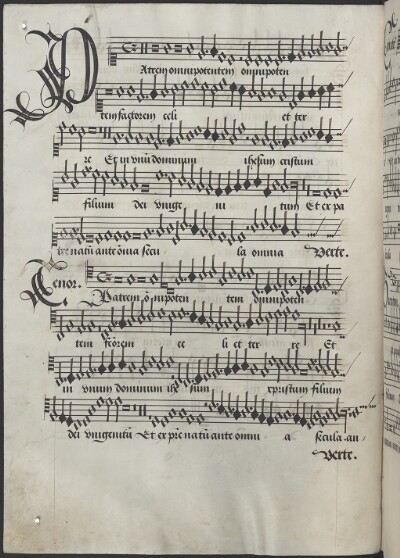 Patrem omnipotentem omnipoten
tem factorem celi et ter
re Et in vnū dominum ihesum cristum
filium dei vnige ni tum Et ex pa
tre natū ante ōnia secu la omnia Verte.
Tenor. Patrem ōnipoten tem omnipoten
tem ce li et ter re Et
in vnum dominum ihe sum xpristum filium
dei vnigenitū Et ex pre natū ante omni a secula an
Verte.